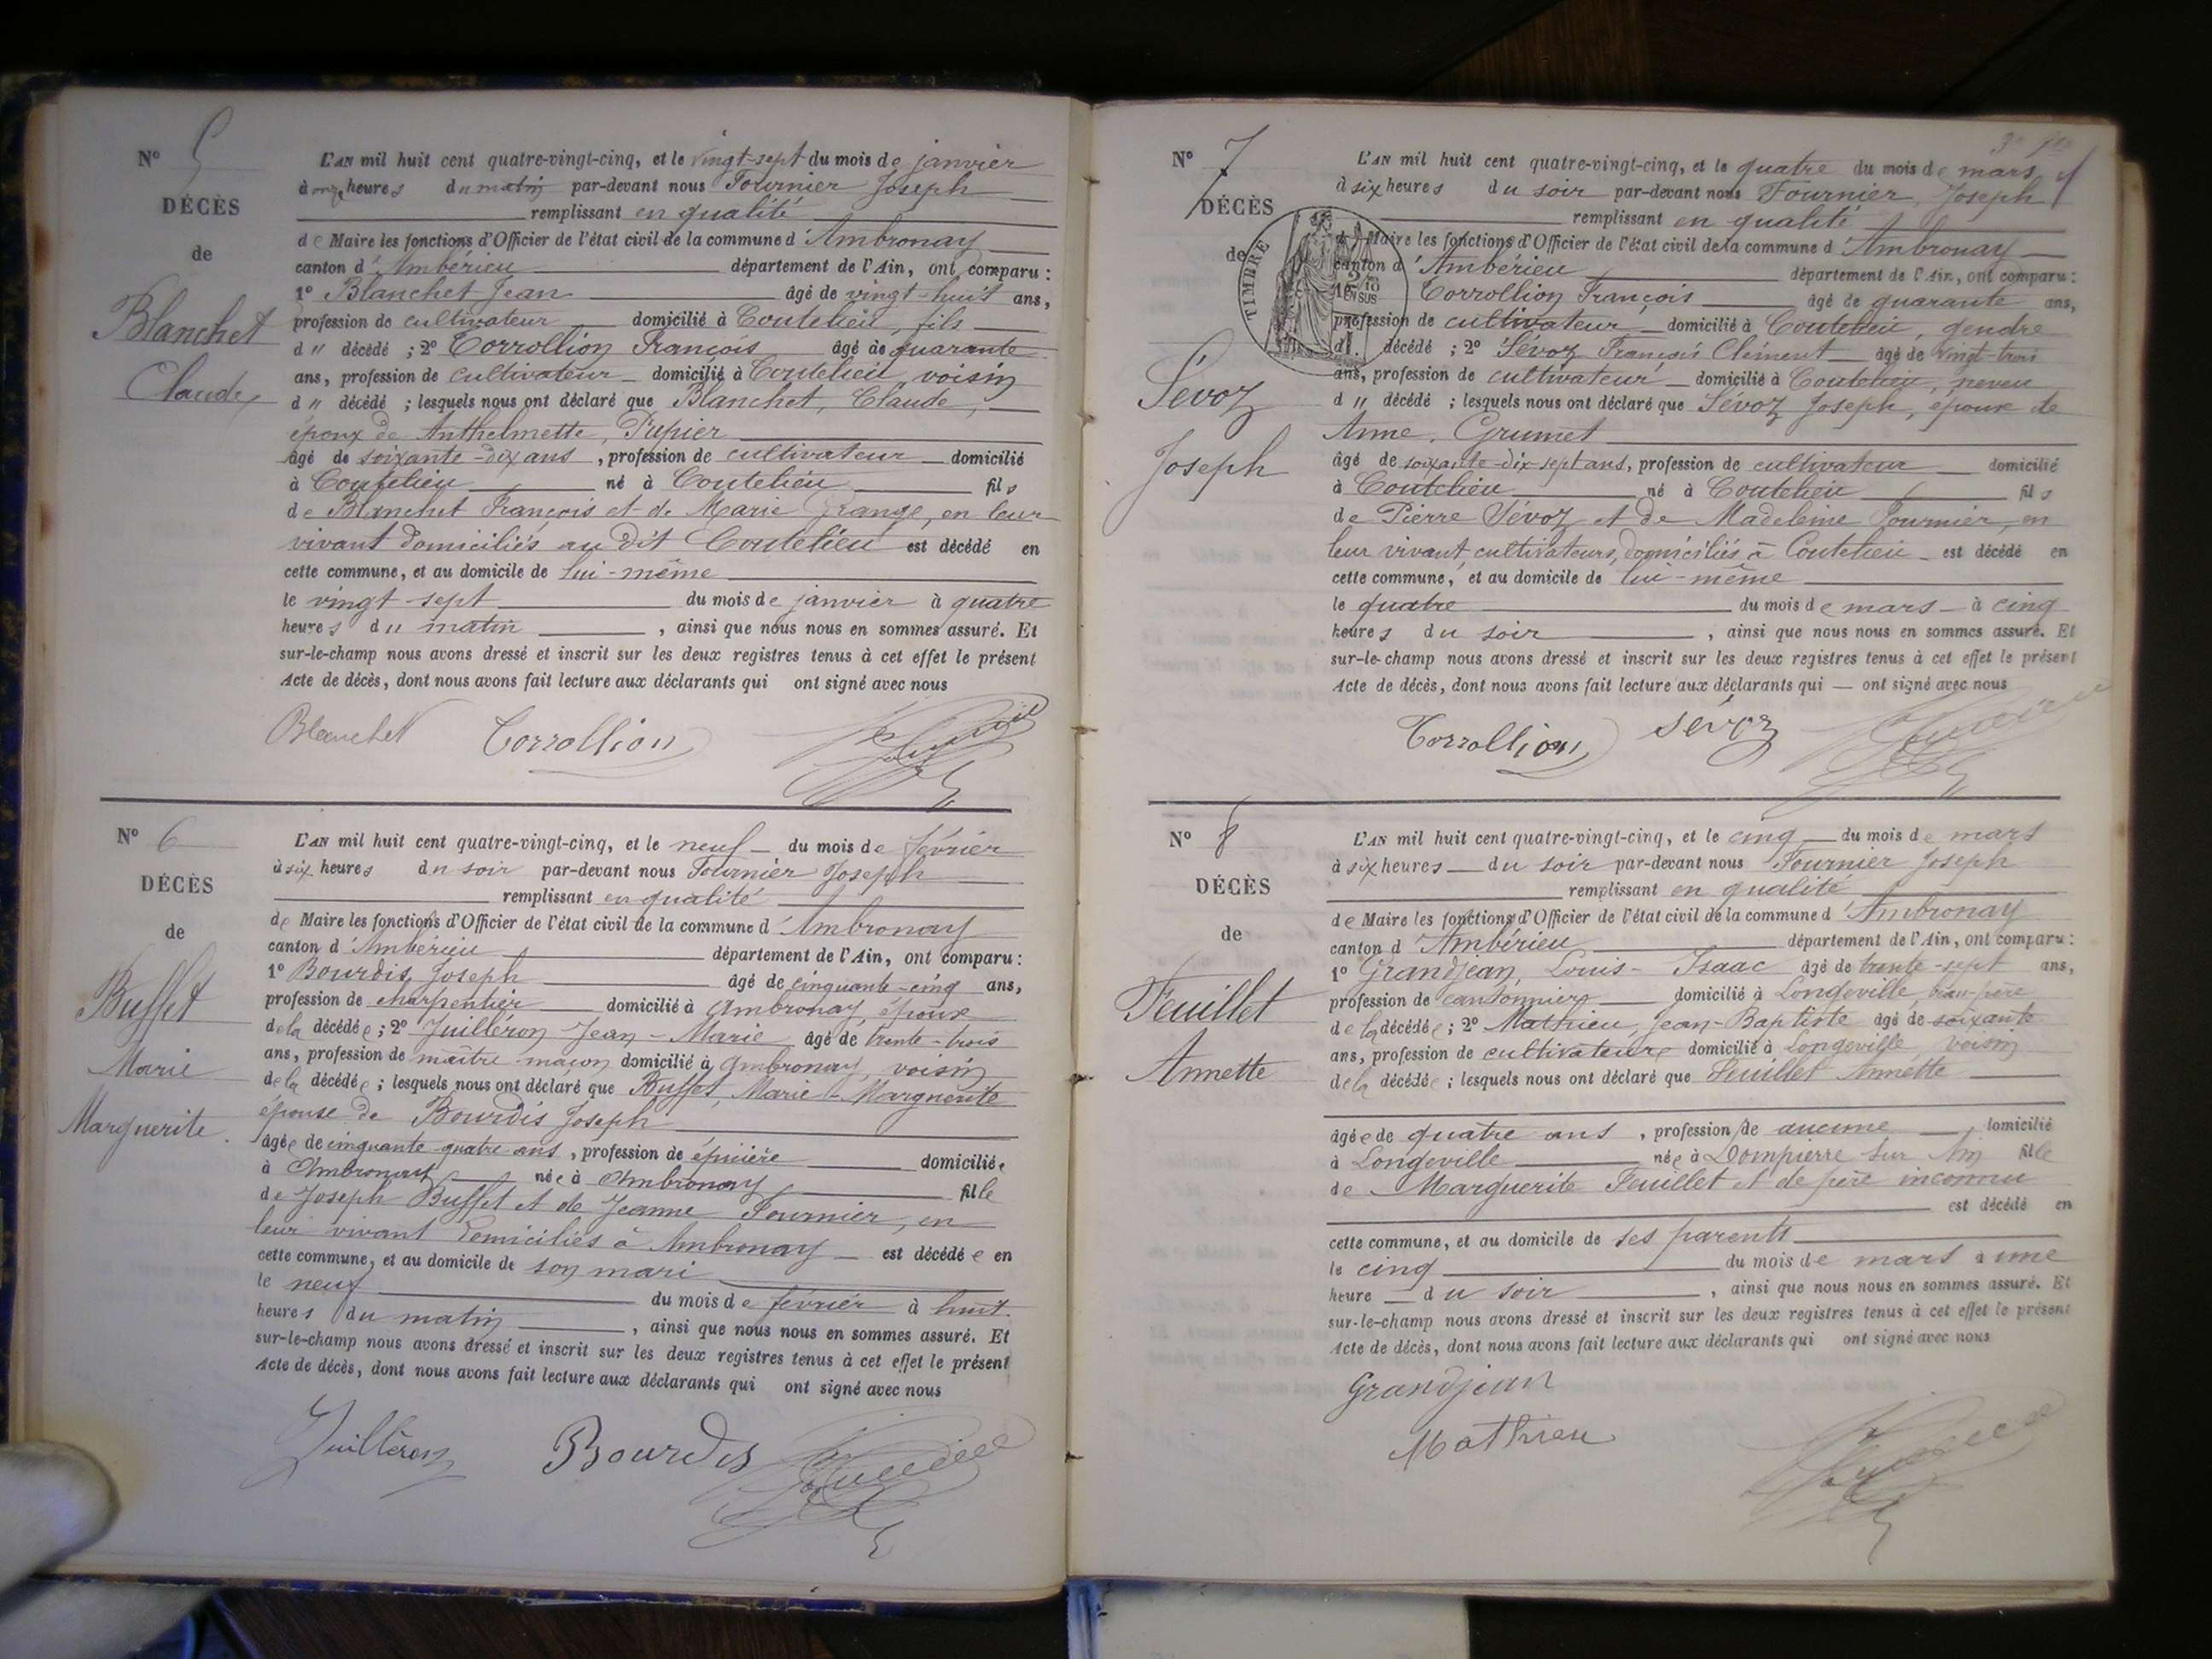 N° 5
DÉCÈS
de
Blanchet
Claude
L'AN mil huit cent quatre-vingt-cinq, et le vingt-sept du mois de janvier
à onze heures du matin par-devant nous Fournier Joseph
remplissant en qualité
de Maire les fonctions d'Officier de l'état civil de la commune d'Ambronay
canton d'Ambérieu département de l'Ain, ont comparu :
1° Blanchet Jean âgé de vingt-huit ans,
profession de cultivateur domicilié à Coutelieu, fils
du décédé ; 2° Corrollion François âgé de quarante
ans, profession de cultivateur domicilié à Coutelieu voisin
du décédé ; lesquels nous ont déclaré que Blanchet, Claude,
époux de Anthelmette,
âgé de soixante-dix ans, profession de cultivateur domicilié
à Coutelieu né à Coutelieu fils
de Blanchet François et de Marie Grange, en leur
vivant domiciliés au dit Coutelieu est décédé en
cette commune, et au domicile de lui-même
le vingt-sept du mois de janvier à quatre
heures du matin, ainsi que nous nous en sommes assuré. Et
sur-le-champ nous avons dressé et inscrit sur les deux registres tenus à cet effet le présent
Acte de décès, dont nous avons fait lecture aux déclarants qui ont signé avec nous
Blanchet Corrollion
N° 6
DÉCÈS
de
Buffet
Marie
Marguerite.
L'AN mil huit cent quatre-vingt-cinq, et le neuf du mois de février
à six heures du soir par-devant nous Fournier Joseph
remplissant en qualité
de Maire les fonctions d'Officier de l'état civil de la commune d'Ambronay
canton d'Ambérieu département de l'Ain, ont comparu :
1° Bourdis Joseph âgé de cinquante-cinq ans,
profession de charpentier domicilié à Ambronay époux
de la décédée ; 2° Juilléron Jean-Marie âgé de trente-trois
ans, profession de maître maçon domicilié à Ambronay, voisin
de la décédée ; lesquels nous ont déclaré que Buffet, Marie-Marguerite
épouse de Bourdis Joseph
âgée de cinquante quatre ans, profession de épicière domiciliée
à Ambronay née à Ambronay fille
de Joseph Buffet et de Jeanne Fournier, en
leur vivant domiciliés à Ambronay est décédée en
cette commune, et au domicile de son mari
le neuf du mois de février à huit
heures du matin, ainsi que nous nous en sommes assuré. Et
sur-le-champ nous avons dressé et inscrit sur les deux registres tenus à cet effet le présent
Acte de décès, dont nous avons fait lecture aux déclarants qui ont signé avec nous
Juilléron Bourdis
N° 7
DÉCÈS
de
TIMBRE
EN SUS
Sévoz
Joseph
L'AN mil huit cent quatre-vingt-cinq, et le quatre du mois de mars
à six heures du soir par-devant nous Fournier, Joseph
remplissant en qualité
de Maire les fonctions d'Officier de l'état civil de la commune d'Ambronay
canton d'Ambérieu département de l'Ain, ont comparu :
1° Corrollion François âgé de quarante ans,
profession de cultivateur domicilié à Coutelieu, gendre
du décédé ; 2° Sévoz François Clément âgé de vingt-trois
ans, profession de cultivateur domicilié à Coutelieu, neveu
du décédé ; lesquels nous ont déclaré que Sévoz Joseph, époux de
Anne, Grumet
âgé de soixante-dix-sept ans, profession de cultivateur domicilié
à Coutelieu né à Coutelieu fils
de Pierre Sévoz et de Madeleine Fournier, en
leur vivant cultivateurs, domiciliés à Coutelieu est décédé en
cette commune, et au domicile de lui-même
le quatre du mois de mars à cinq
heures du soir, ainsi que nous nous en sommes assuré. Et
sur-le-champ nous avons dressé et inscrit sur les deux registres tenus à cet effet le présent
Acte de décès, dont nous avons fait lecture aux déclarants qui — ont signé avec nous
Corrollion Sévoz
N° 8
DÉCÈS
de
Feuillet
Annette
L'AN mil huit cent quatre-vingt-cinq, et le cinq du mois de mars
à six heures du soir par-devant nous Fournier Joseph
remplissant en qualité
de Maire les fonctions d'Officier de l'état civil de la commune d'Ambronay
canton d'Ambérieu département de l'Ain, ont comparu :
1° Grandjean, Louis-Isaac âgé de trente-sept ans,
profession de cantonnier domicilié à Longeville, beau-père
de la décédée ; 2° Mathieu, Jean-Baptiste âgé de soixante
ans, profession de cultivateur domicilié à Longeville, voisin
de la décédée ; lesquels nous ont déclaré que Feuillet Annette
âgée de quatre ans, profession de aucune domicilié
à Longeville née à Dompierre sur Ain fille
de Marguerite Feuillet et de père inconnu
est décédé en
cette commune, et au domicile de ses parents
le cinq du mois de mars à une
heure du soir, ainsi que nous nous en sommes assuré. Et
sur-le-champ nous avons dressé et inscrit sur les deux registres tenus à cet effet le présent
Acte de décès, dont nous avons fait lecture aux déclarants qui ont signé avec nous
Grandjean
Mathieu